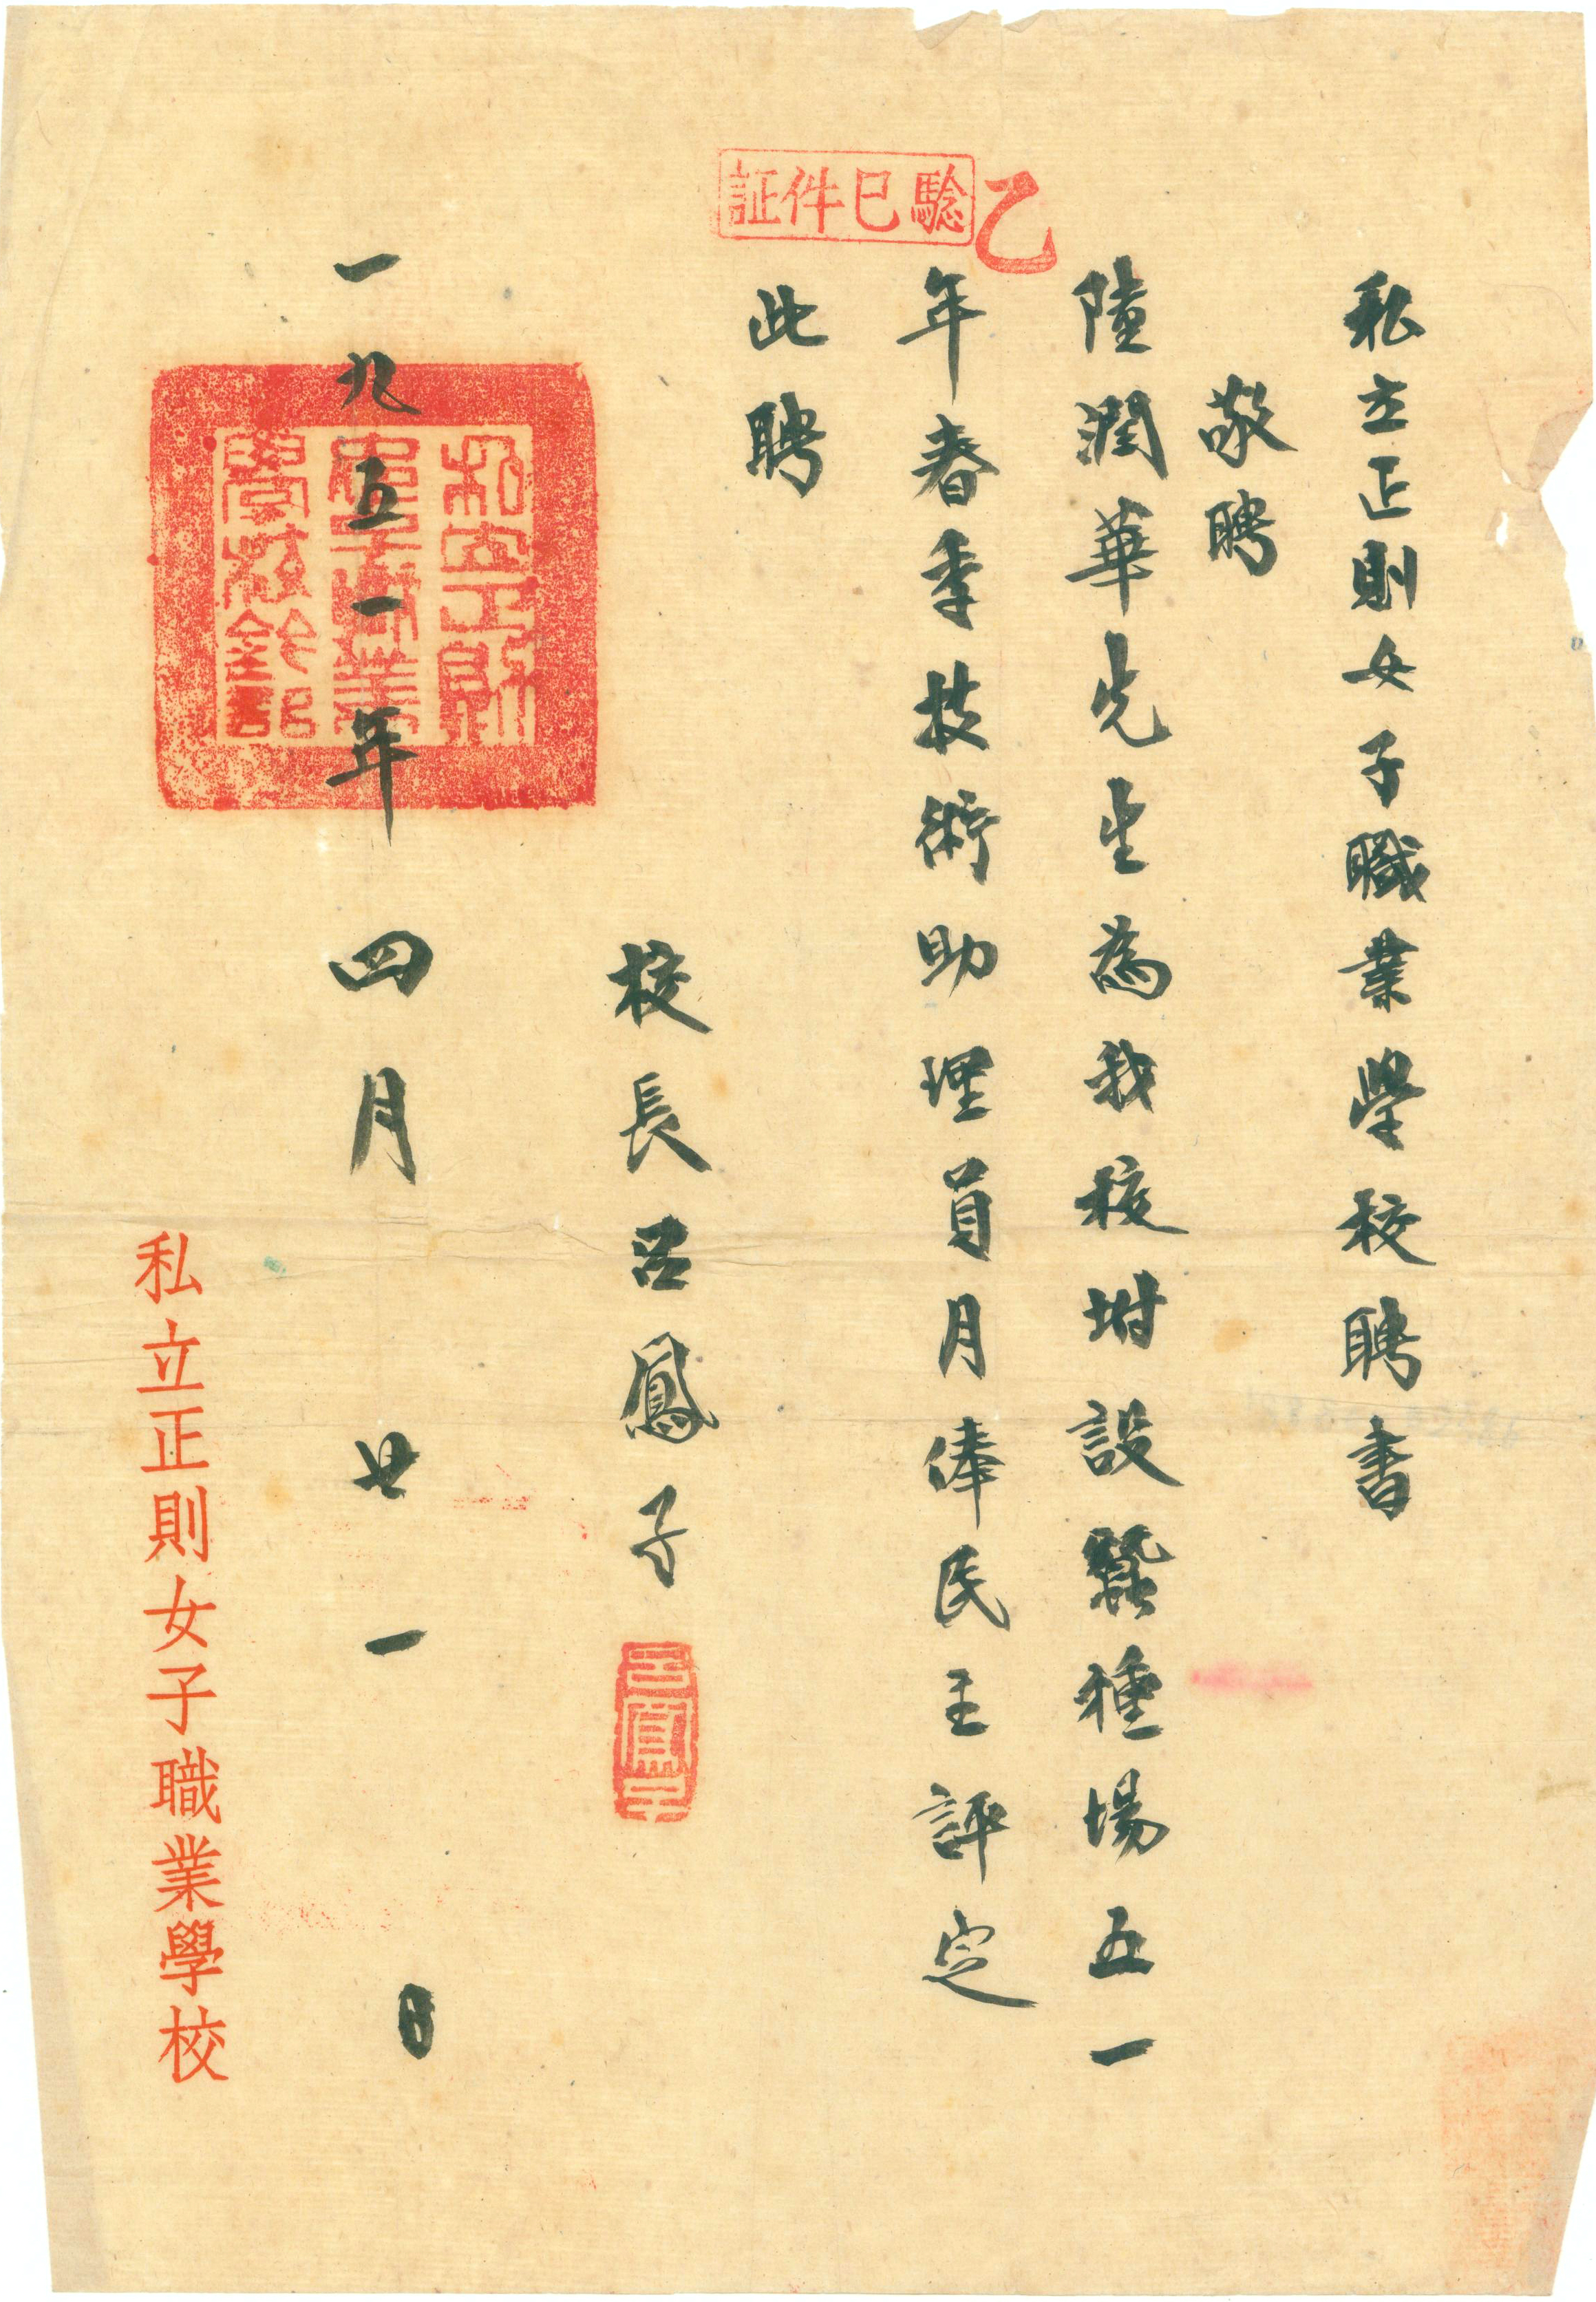 私立正則女子職業學校聘書
敬聘
陸潤華先生為我校坿設蠶種場五一
年春季技術助理員月俸民主評定
此聘
校長呂鳳子
呂鳳子
一九五一年四月廿一日
私立正則女子職業學校鈐記
私立正則女子職業學校
証件已騐
乙